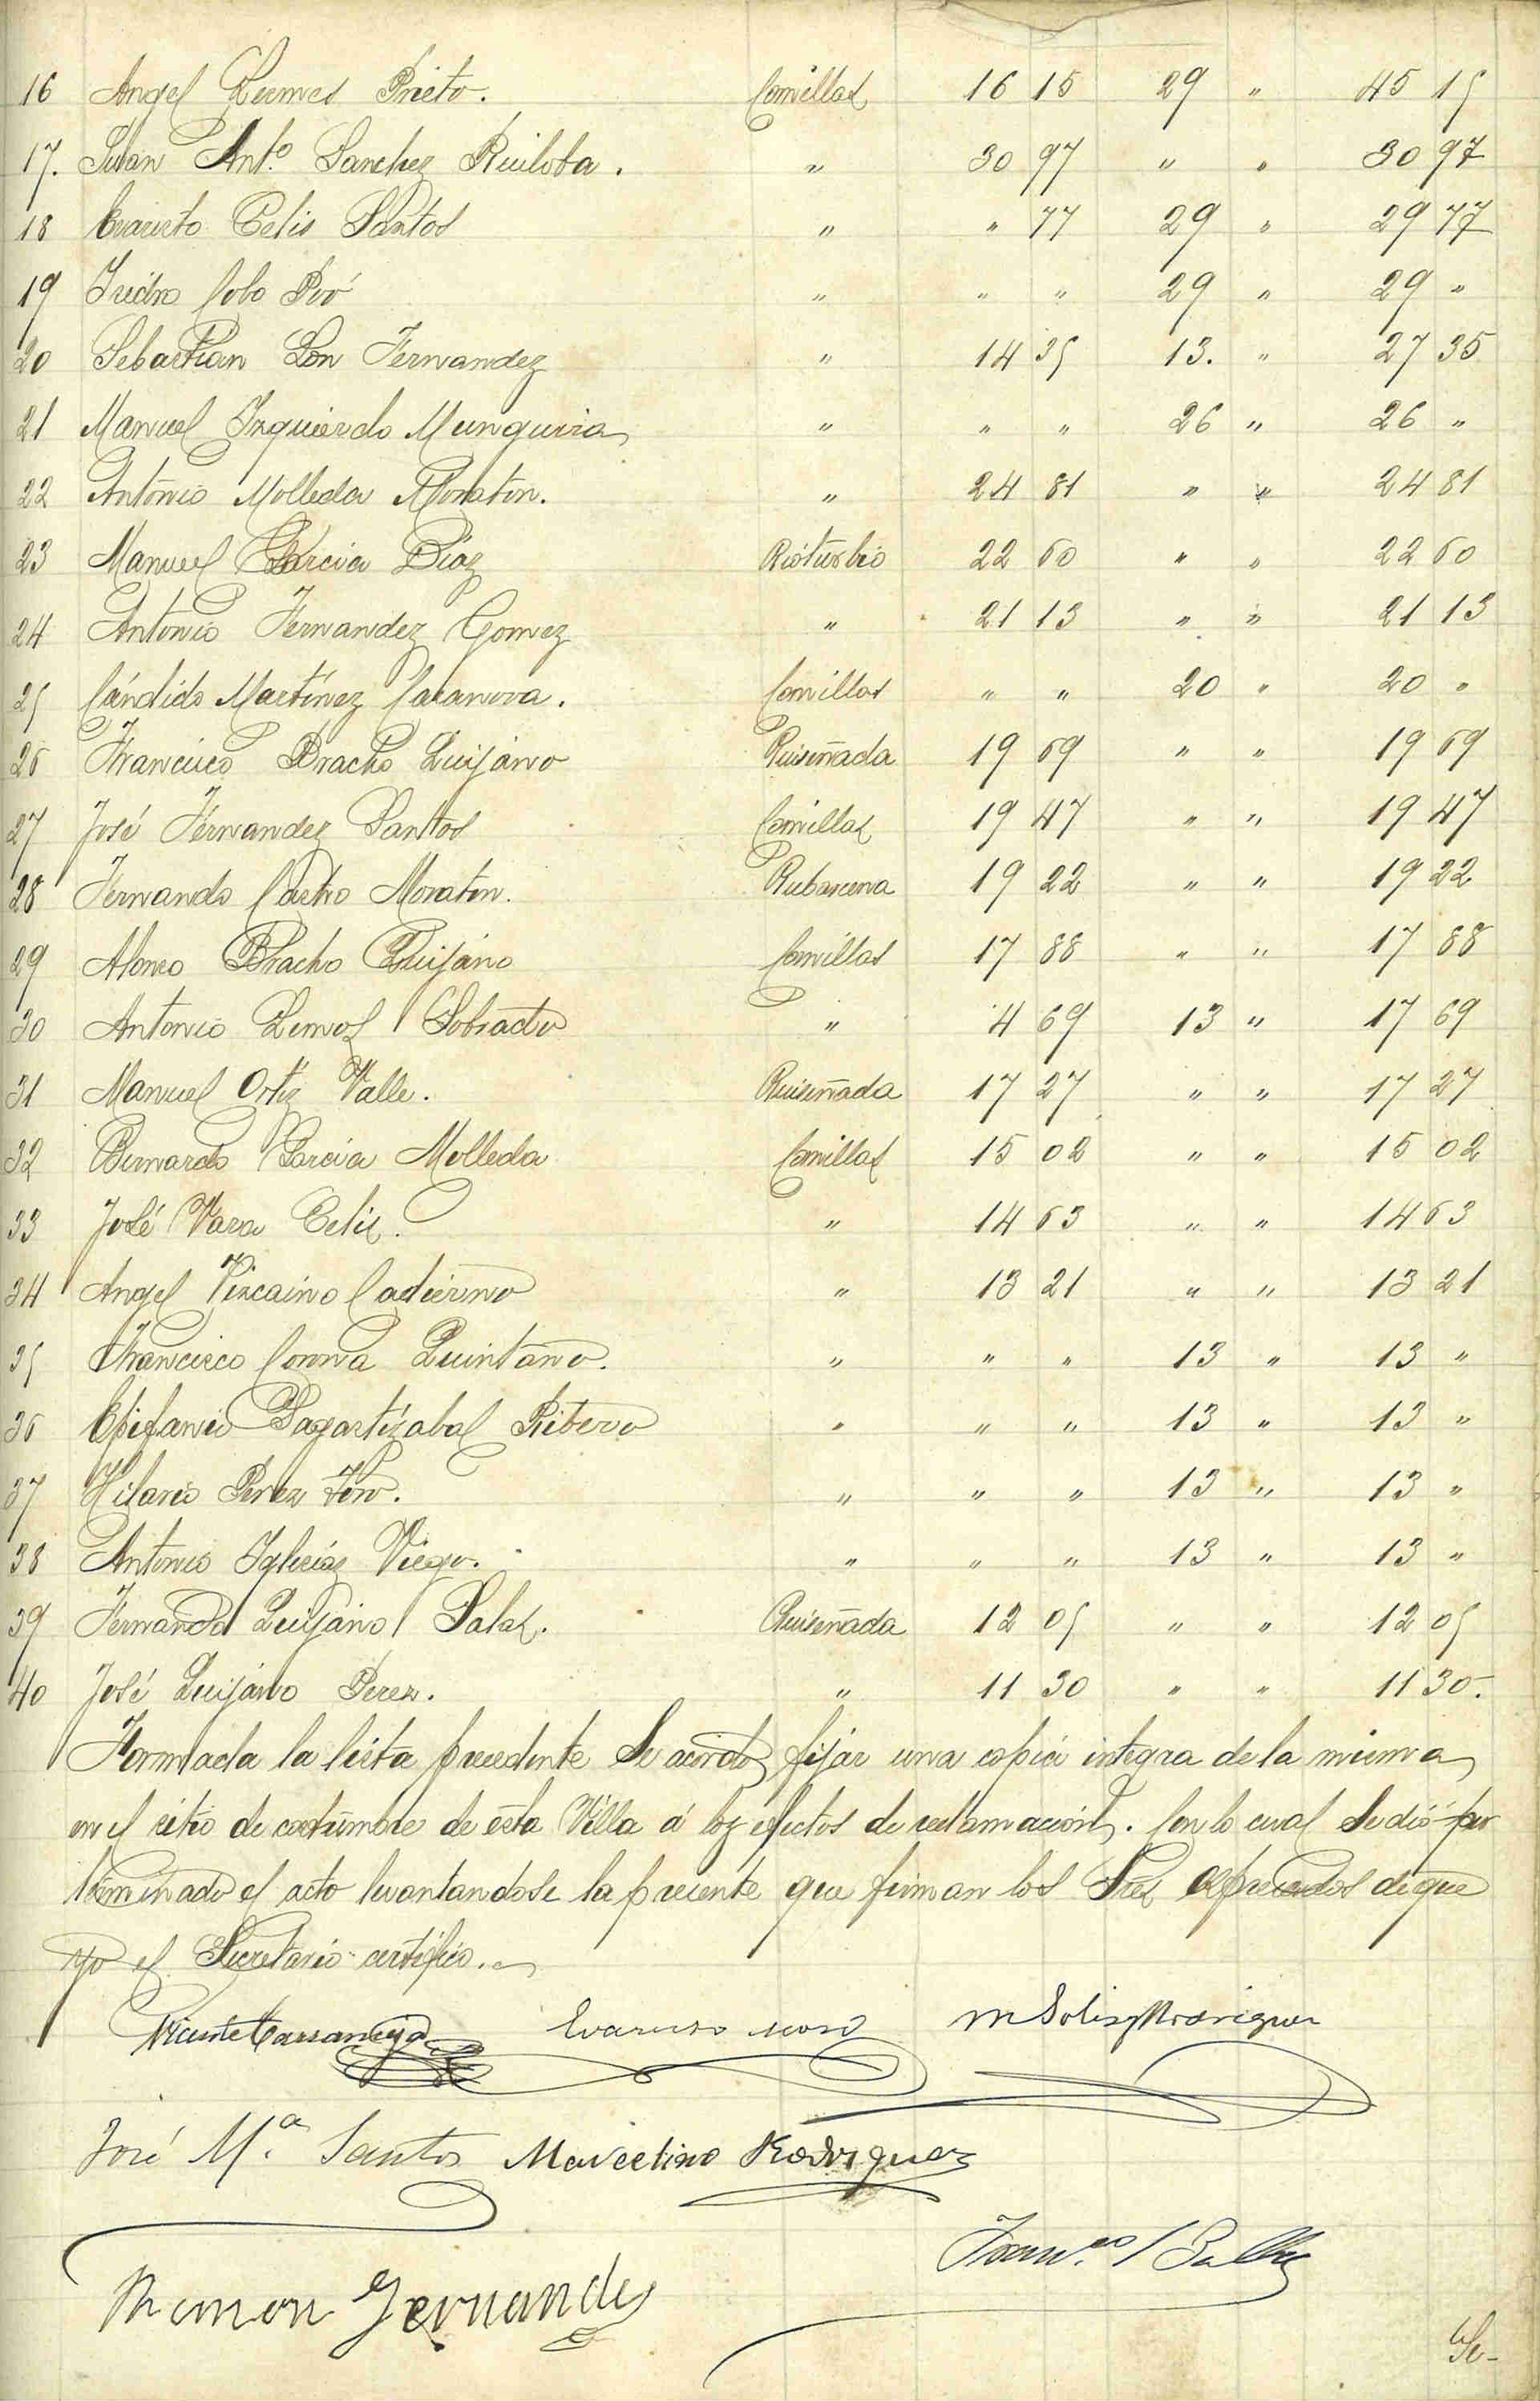 16 Angel Lermes Prieto. Comillas 16 15 29 " 45 15
17. Juan Ant.º Sanchez Ruiloba. " 30 97 " " 30 97
18 Evaristo Celis Santos " " 77 29 " 29 77
19 Isidro Cobo Poó " " " 29 " 29 "
20 Sebastian Lon Fernandez " 14 35 13. " 27 35
21 Manuel Izquierdo Munguria " " " 26 " 26 "
22 Antonio Molleda Moraton. " 24 81 " " 24 81
23 Manuel Garcia Diaz Rioturbio 22 60 " " 22 60
24 Antonio Fernandez Gomez " 21 13 " " 21 13
25 Cándido Martínez Casanova. Comillas " " 20 " 20 "
26 Francisco Bracho Quijano Ruiseñada 19 69 " " 19 69
27 José Fernandez Santos Comillas 19 47 " " 19 47
28 Fernando Castro Moraton. Rubarcena 19 22 " " 19 22
29 Alonso Bracho Quijano Comillas 17 88 " " 17 88
30 Antonio Lemos Sobrado " 4 69 13 " 17 69
31 Manuel Ortiz Valle. Ruiseñada 17 27 " " 17 27
32 Bernardo Garcia Molleda Comillas 15 02 " " 15 02
33 José Vara Celis. " 14 63 " " 14 63
34 Angel Vizcaino Cadierno " 13 21 " " 13 21
35 Francisco Corona Quintana. " " " 13 " 13 "
36 Epifanio Sagartizabal Ribero " " " 13 " 13 "
37 Hilario Perez " " " 13 " 13 "
38 Antonio Iglesias Viego. " " " 13 " 13 "
39 Fernando Quijano Salas. Ruiseñada 12 05 " " 12 05
40 José Quijano Perez. " 11 30 " " 11 30.
Formada la lista precedente se acordó fijar una copia integra de la misma
en el sitio de costumbre de esta Villa á los efectos de reclamación. Con lo cual se dió por
terminado el acto levantandose la presente que firman los Sres espresados de que
yo el Secretario certifico.
Vicente Carranceja Evaristo M Solis y Rodriguez
José M.ª Santos Marcelino Rodriguez
Fran.co
Ramon Fernandez
Se-